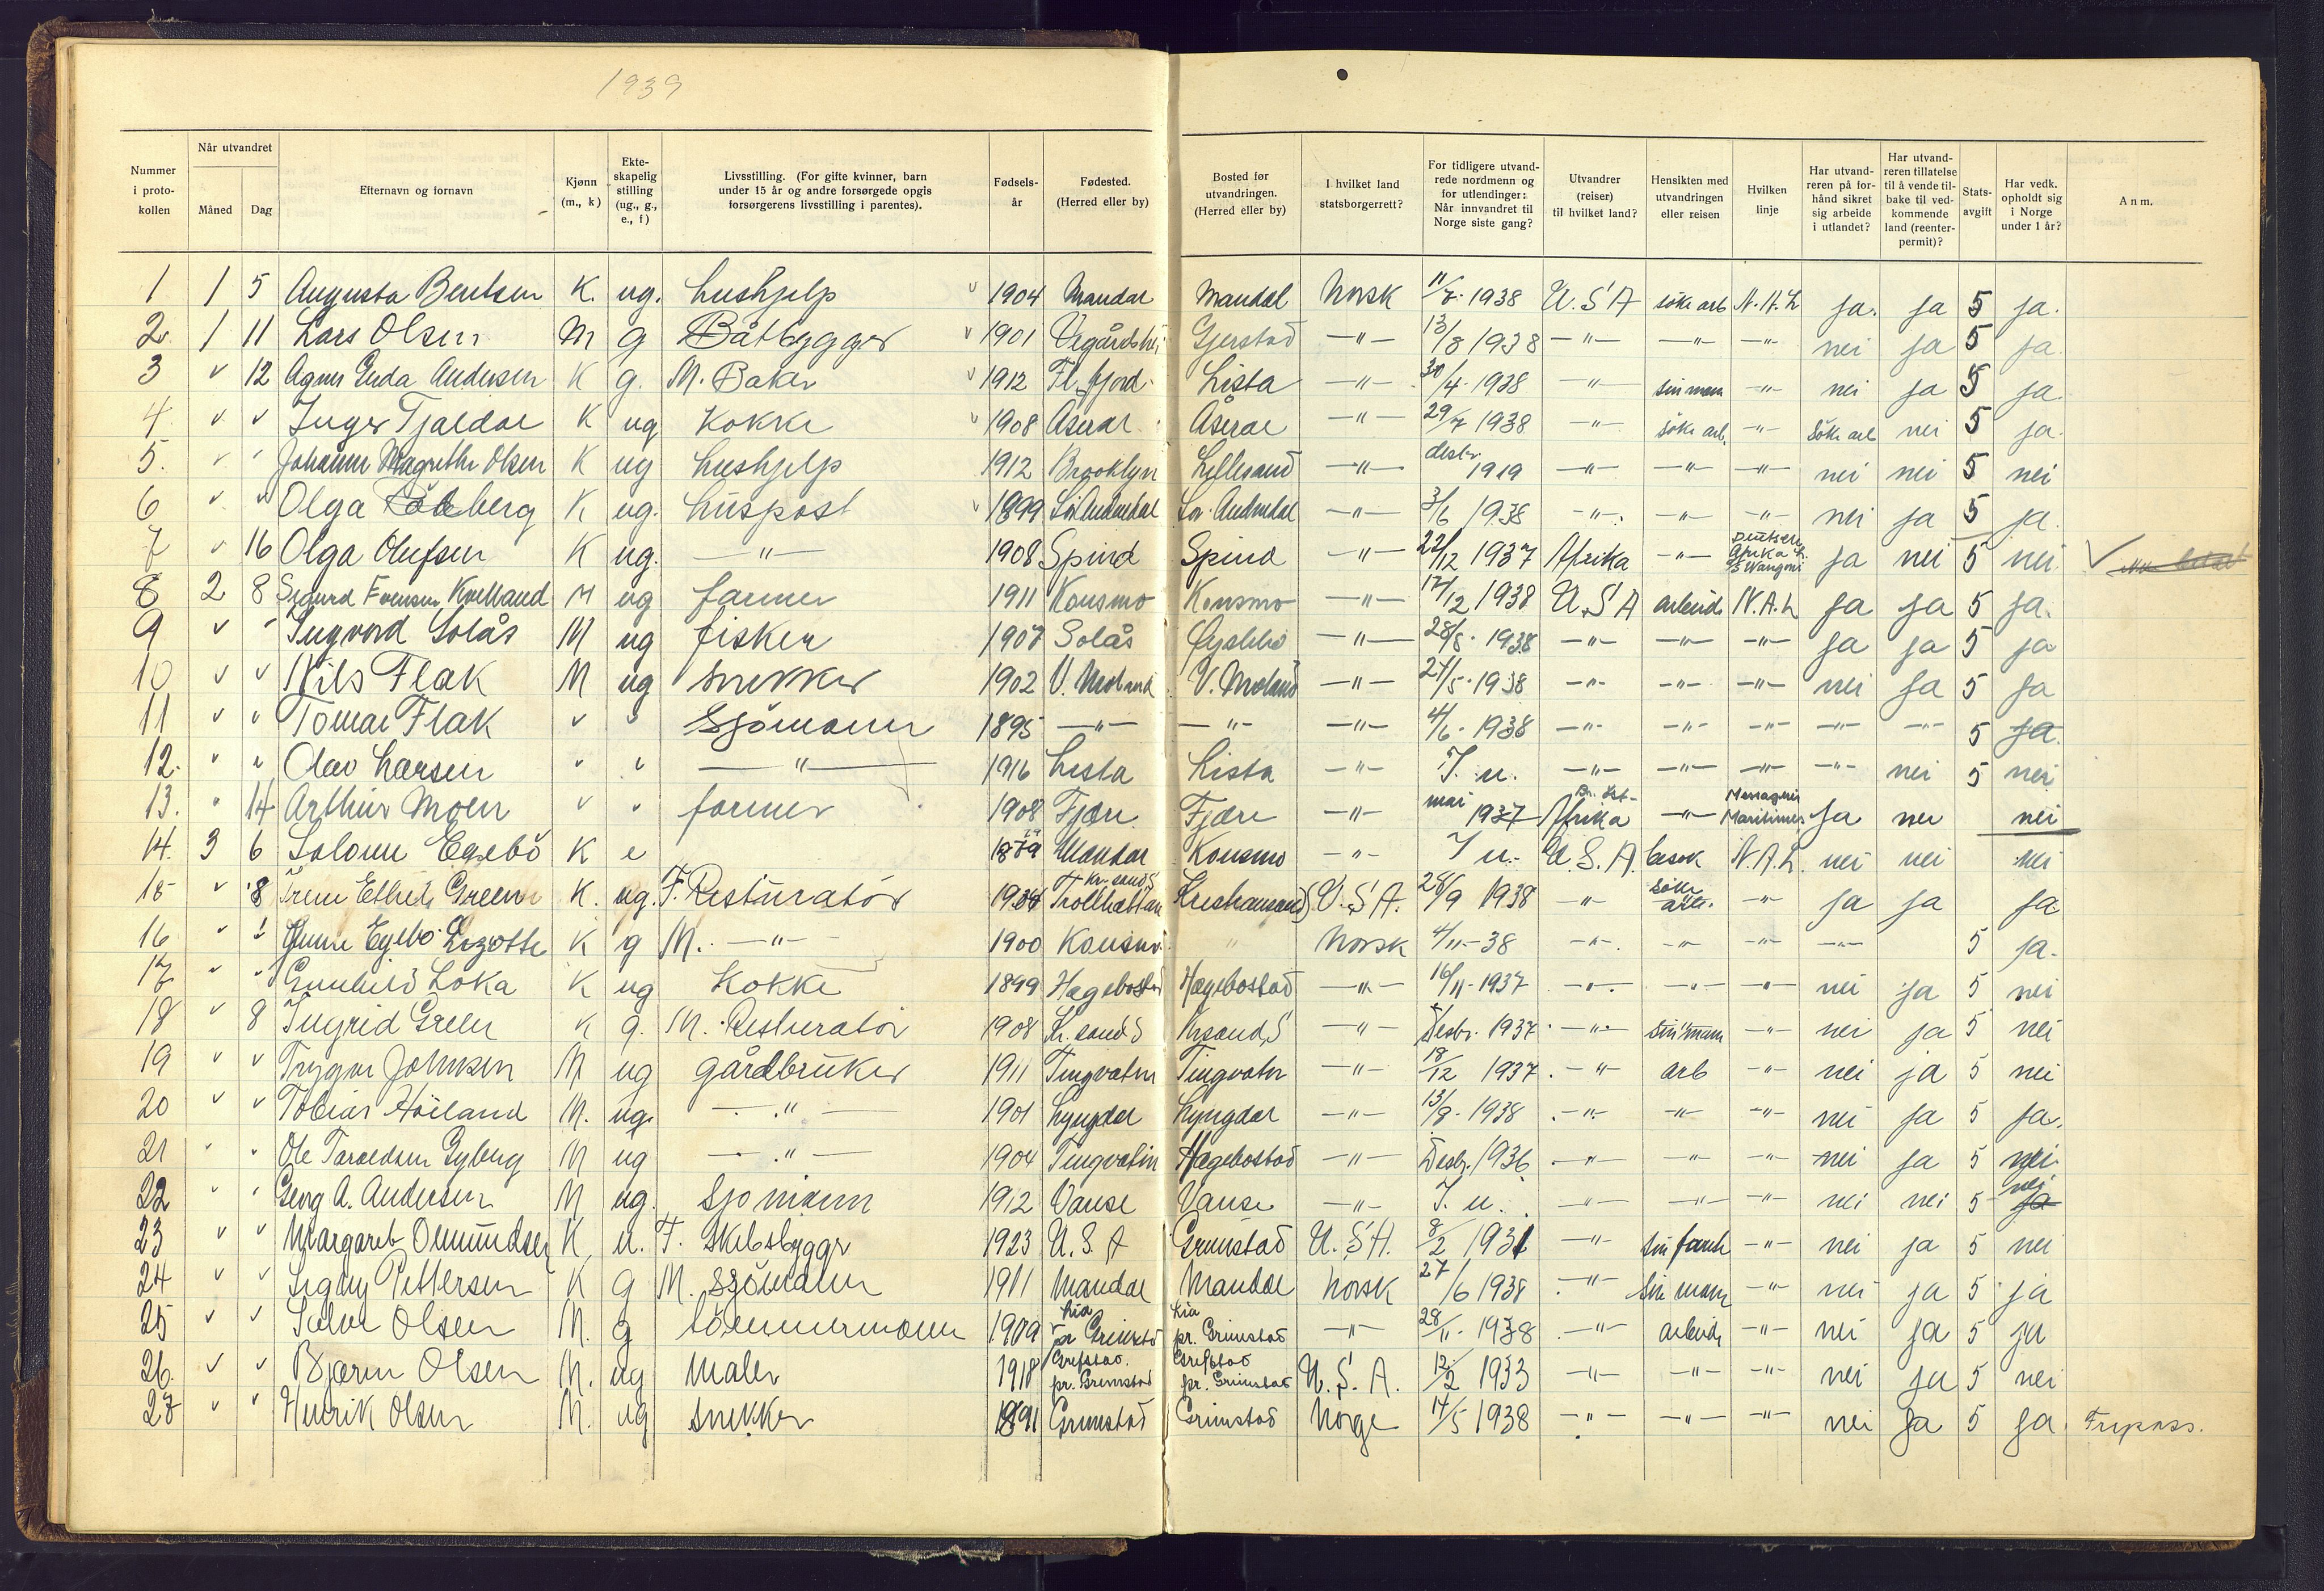 1939
Nummer i proto- kollen | Når utvandret | Måned | Dag | Efternavn og fornavn | Kjønn (m., k) | Ekte- skapelig stilling (ug., g., e., f) | Livsstilling. (For gifte kvinner, barn under 15 år og andre forsørgede opgis forsørgerens livsstilling i parentes). | Fødsels- år | Fødested. (Herred eller by) | Bosted før utvandringen. (Herred eller by) | I hvilket land statsborgerrett? | For tidligere utvand- rede nordmenn og for utlendinger: Når innvandret til Norge siste gang? | Utvandrer (reiser) til hvilket land? | Hensikten med utvandringen eller reisen | Hvilken linje | Har utvand- reren på for- hånd sikret sig arbeide i utlandet? | Har utvand- reren tillatelse til å vende til- bake til ved- kommende land (reenter- permit)? | Stats- avgift | Har vedk. opholdt sig i Norge under 1 år? | Anm.
1 1 5 Augusta Bentsen K. ug. hushjelp v 1904 Mandal Mandal Norsk 11/7 1938 U.S.A söke arb N.A.L ja. ja 5 ja.
2 1 11 Lars Olsen M g Båtbygger v 1901 Vegårdshei Gjerstad -"- 13/8 1938 -"- -"- -"- nei ja 5 ja.
3 v 12 Agnes Gerda Andersen K g. M. Baker v 1912 Fl. fjord Lista -"- 30/4 1938 -"- sin mann -"- nei ja 5 ja.
4 v v Inger Tjaldal K ug Kokke v 1908 Åseral Åseral -"- 29/7 1938 -"- söke arb. -"- söke arb nei 5 ja.
5. v " Johanne Magrethe Olsen K ug hushjelp 1912 Brooklyn Lillesand -"- desbr 1919 -"- -"- -"- nei nei 5 nei
6 v " Olga berg K ug. huspost v 1899 Sör Audnedal Sör Audnedal -"- 3/6 1938 -"- -"- -"- nei ja 5 ja.
7 v 16 Olga Olufsen K ug. -"- 1908 Spind Spind -"- 22/12 1937 Afrika -"- Deutsche Afrika L. S/S Wangoni ja nei 5 nei v
8 2 8 Sigurd Evensen Kvelland M ug farmer 1911 Konsmo Konsmo -"- 17/12 1938 U.S.A arbeide N.A.L ja ja 5 ja.
9 v " Ingvord Solås M ug fisker 1907 Solås -"- 28/8 1938 -"- -"- -"- ja ja 5 ja
10 v v Nils Flak M ug snekker 1902 V. Moland V. Moland -"- 24/5 1938 -"- -"- -"- nei ja 5 ja
11 v v Tomas Flak v v Sjömann 1895 -"- -"- -"- 4/6 1938 -"- -"- -"- -"- -"- 5 ja.
12. " " Olav Larsen v v -"- 1916 Lista Lista -"- I. u. -"- -"- -"- -"- nei 5 nei
13. " 14 Arthur Moen v " farmer 1908 Fjære Fjære -"- mai 1937 Afrika -"- Messageries Maritimes ja nei nei
14. 3 6 Salome Egebö K e 1879 Mandal Konsmo -"- I u. U.S.A. besök N.A.L nei nei nei
15 v 8 Irene Ethel Green K. ug. F. Resturatör 1934 Kr.sand S Trollhättan Kristiansand S. U.S.A. 28/9 1938 -"- söke arb. -"- ja ja ja
16 " " Anne Egebö Lizotte K g M. -"- 1900 Konsmo " Norsk 4/11-38 -"- -"- -"- -"- 5 ja.
17 " " Gunhild Loka K ug Kokke 1899 Hægebostad Hægebostad -"- 16/11-1937 -"- -"- -"- nei ja 5 nei
18 v 8 Ingrid Green K g. M. Resturatör 1908 Kr.sand S Krsand S -"- Desbr. 1937 -"- sin mann -"- nei ja 5 nei
19 v v Trygve Johnsen M ug gårdbruker 1911 Tingvatn Tingvatn -"- 18/12 1937 -"- arb -"- nei ja 5 nei
20 v v Tobias Höiland M. ug. -"- 1901 Lyngdal Lyngdal -"- 13/9 1938 -"- -"- -"- nei ja 5 ja.
21 " " Ole Taraldsen Gyberg M ug -"- 1904 Tingvatn Hægebostad -"- Desbr. 1936 -"- -"- -"- nei ja 5 nei
22 " " Georg A. Andersen M ug. Sjömann 1912 Vanse Vanse -"- I. u. -"- -"- -"- nei nei 5 nei ja
23 v v Margaret Omundsen K u. F. Skibsbygger 1923 U.S.A Grimstad U.S.A. 8/2 1931 -"- sin familie -"- nei ja 5 nei
24 v v Signy Pettersen K g M. Sjömann 1911 Mandal Mandal Norsk 27/6 1938 -"- sin mann -"- nei ja 5 ja
25 v v Salve Olsen M. g tömmermann 1909 Lia pr Grimstad Lia pr. Grimstad -"- 28/11 1938 -"- arbeide -"- nei ja 5 ja
26. v v Bjarne Olsen M. ug maler 1918 Grefstad. pr. Grimstad Grefstad pr. Grimstad U.S.A. 12/2 1933 -"- -"- -"- nei ja 5 nei
27 v " Henrik Olsen M. ug snekker 1891 Grimstad Grimstad Norge 14/5 1938 -"- -"- -"- nei ja 5 ja. Fripass.